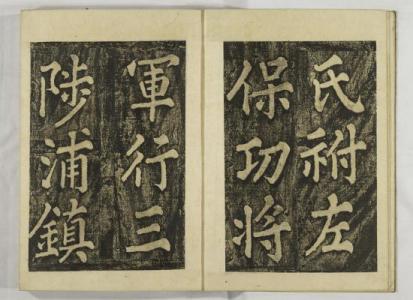 氏祔左
保功将
軍行三
陟浦鎮